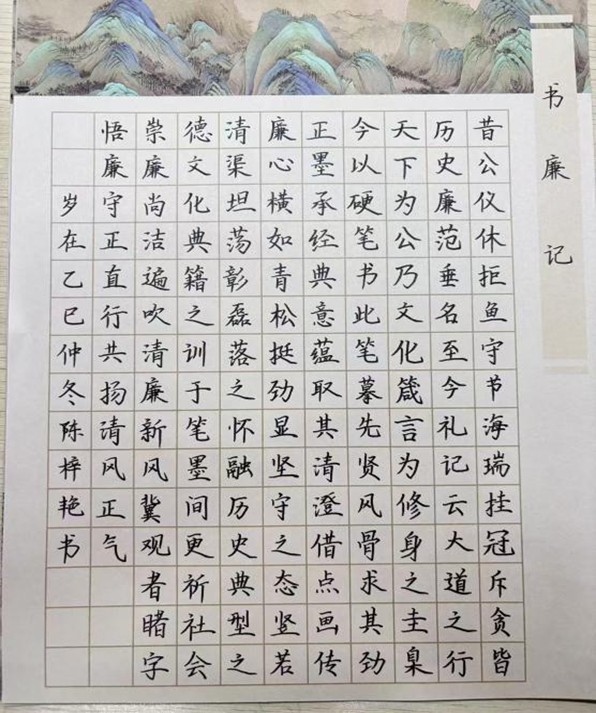 书廉记
昔公仪休拒鱼守节海瑞挂冠斥贪皆
历史廉范垂名至今礼记云大道之行
天下为公乃文化箴言为修身之圭臬
今以硬笔书此笔摹先贤风骨求其劲
正墨承经典意蕴取其清澄借点画传
廉心横如青松挺劲显坚守之态竖若
清渠坦荡彰磊落之怀融历史典型之
德文化典籍之训于笔墨间更祈社会
崇廉尚洁遍吹清廉新风冀观者睹字
悟廉守正直行共扬清风正气
岁在乙巳仲冬陈梓艳书